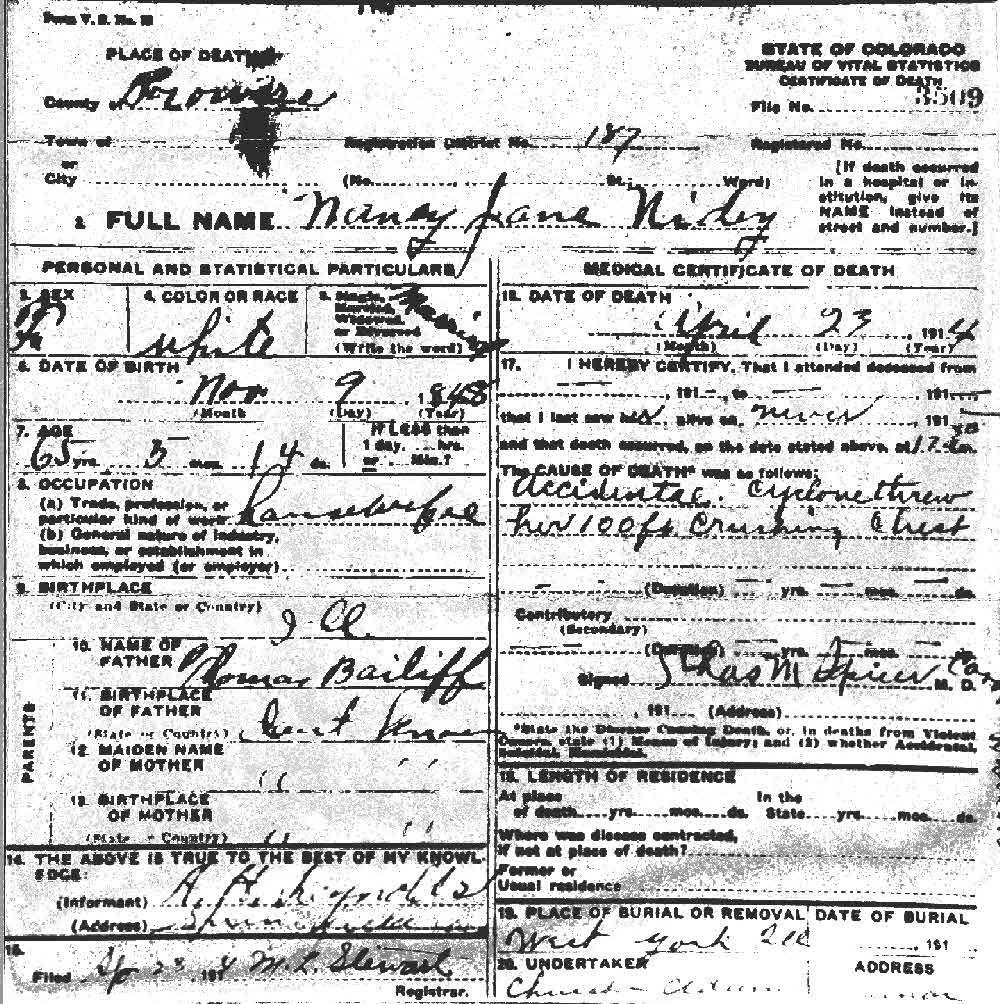 Form V. S. No. 
PLACE OF DEATH
County of Prowers
Town of
or
City
Registration District No. 187
(No. St.; Ward)
STATE OF COLORADO
BUREAU OF VITAL STATISTICS
CERTIFICATE OF DEATH
File No. 3509
Registered No.
[If death occurred
in a hospital or in-
stitution, give its
NAME instead of
street and number.]
2 FULL NAME Nancy Jane Nidey
PERSONAL AND STATISTICAL PARTICULARS
3. SEX
F
4. COLOR OR RACE
white
5. Single,
Married,
Widowed,
or Divorced
(Write the word)
6. DATE OF BIRTH
Nov 9 1848
(Month (Day) (Year)
7. AGE
65 yrs. 5 mos. 14 ds.
If LESS than
1 day, hrs.
or Min.?
8. OCCUPATION
(a) Trade, profession, or
particular kind of work
(b) General nature of industry,
business, or establishment in
which employed (or employer)
9. BIRTHPLACE
(City and State or Country)
Ill.
PARENTS
10. NAME OF
FATHER
Thomas Bailiff
11. BIRTHPLACE
OF FATHER
(State or Country)
12. MAIDEN NAME
OF MOTHER
" "
13. BIRTHPLACE
OF MOTHER
(State or Country)
" "
14. THE ABOVE IS TRUE TO THE BEST OF MY KNOWL-
EDGE:
(Informant) A. H.
(Address)
15.
Filed Ap 23 1914 M. L. Stewart
Registrar.
MEDICAL CERTIFICATE OF DEATH
16. DATE OF DEATH
April 23, 1914
(Month) (Day) (Year)
17. I HEREBY CERTIFY, That I attended deceased from
191 to 191
that I last saw her alive on never 191
and that death occurred, on the date stated above, at m.
The CAUSE OF DEATH* was as follows:
Accidental. Cyclone threw
her 100 ft crushing chest
(Duration) yrs. mos. ds.
Contributory
(Secondary)
(Duration) yrs. mos. ds.
Signed Chas M Spicer M. D.
, 191 (Address)
*State the Disease Causing Death, or, in deaths from Violent
Causes, state (1) Means of Injury; and (2) whether Accidental,
Suicidal, Homicidal.
18. LENGTH OF RESIDENCE
At place
of death yrs. mos. ds.
In the
State yrs. mos. ds.
Where was disease contracted,
if not at place of death?
Former or
Usual residence
19. PLACE OF BURIAL OR REMOVAL
West York Ill
DATE OF BURIAL
, 191
20. UNDERTAKER
ADDRESS